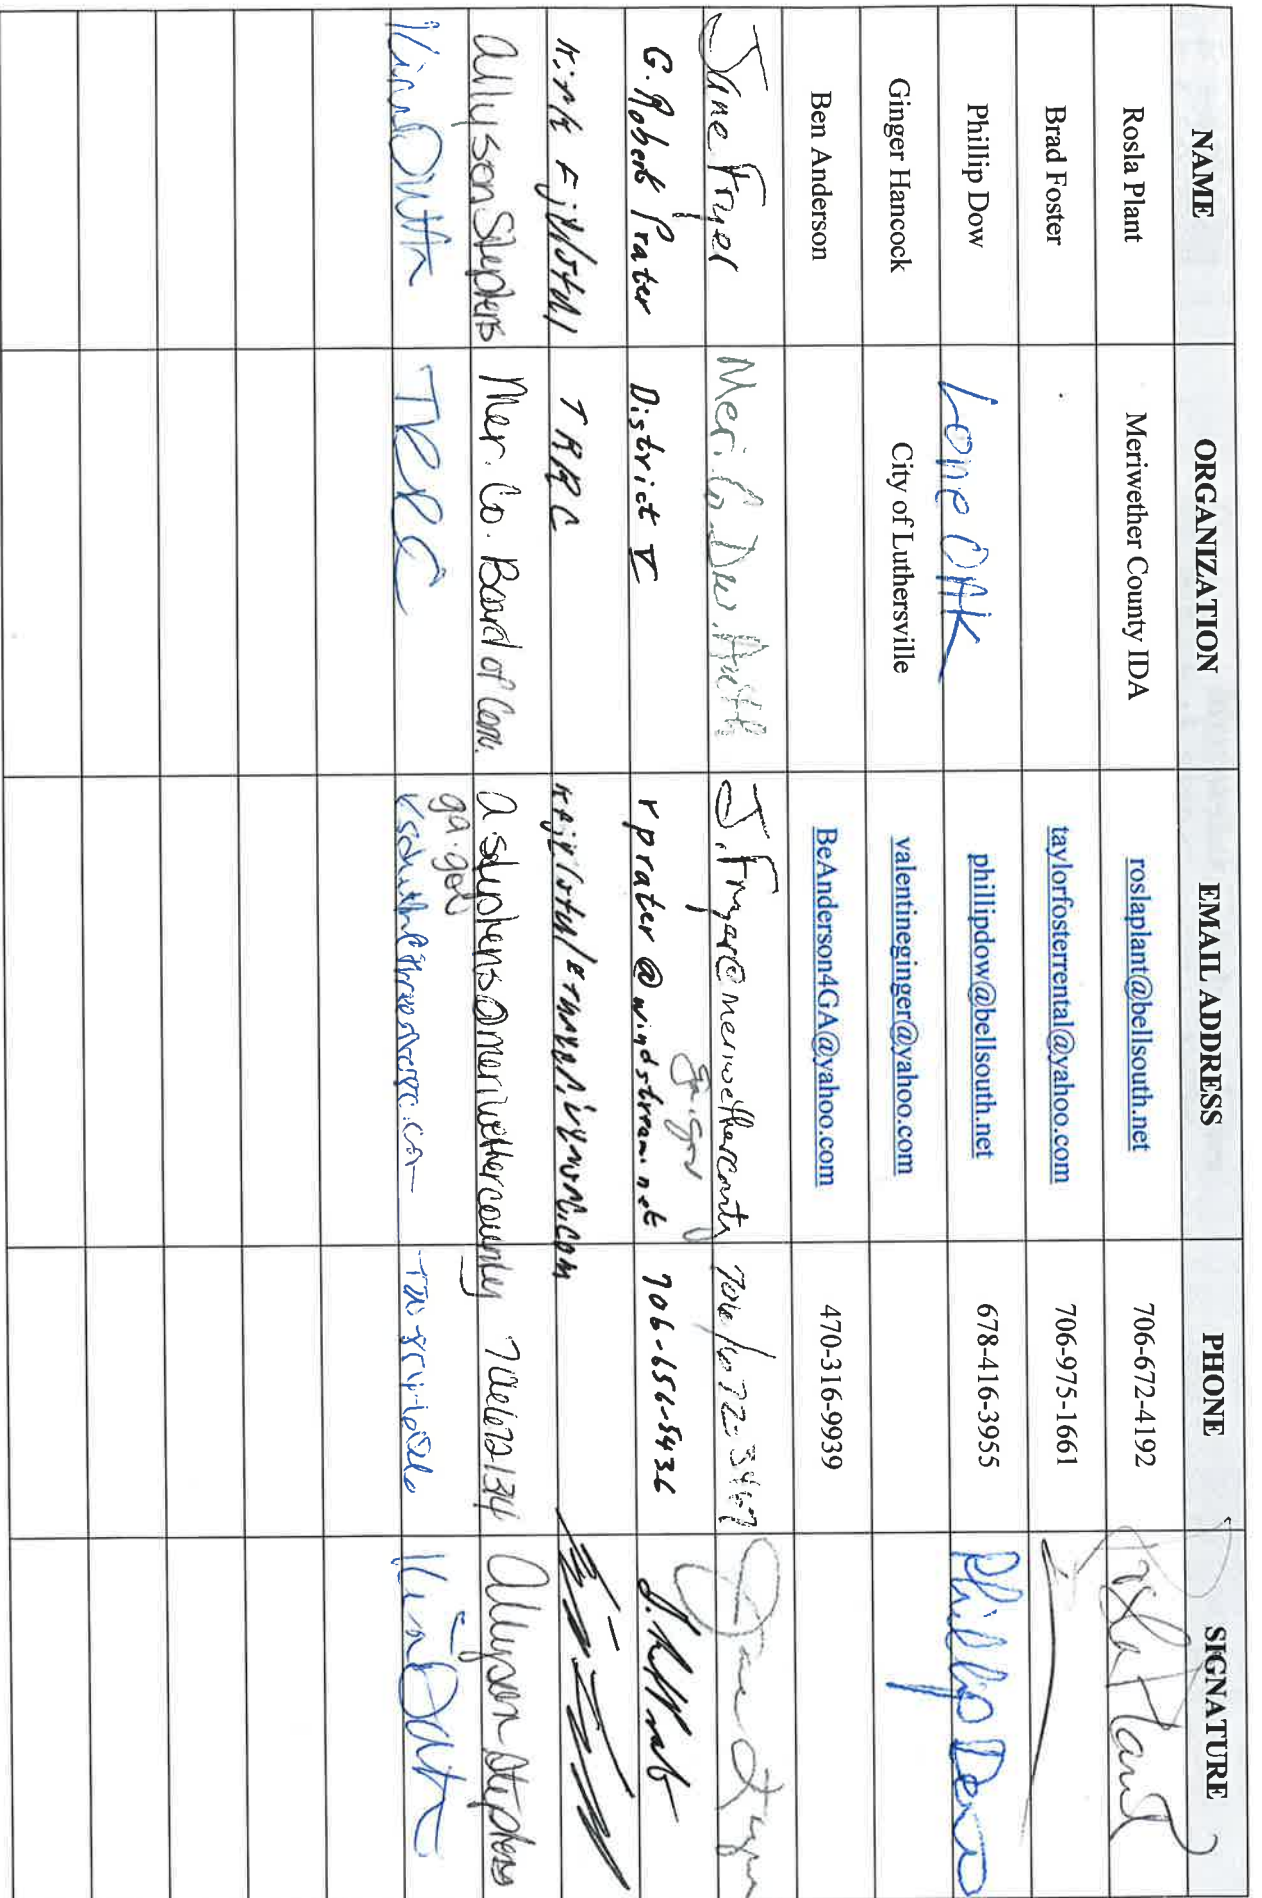 NAME ORGANIZATION EMAIL ADDRESS PHONE SIGNATURE
Rosla Plant Meriwether County IDA roslaplant@bellsouth.net 706-672-4192 Rosla Plant
Brad Foster taylorfosterrental@yahoo.com 706-975-1661
Phillip Dow Lone Oak phillipdow@bellsouth.net 678-416-3955 Phillip Dow
Ginger Hancock City of Luthersville valentineginger@yahoo.com
Ben Anderson BeAnderson4GA@yahoo.com 470-316-9939
Jane Fryer Meri. Co. Dev. Auth J.Fryer@meriwethercounty 706/672-3467 Jane Fryer
ga.gov
G. Robert Prater District V rprater@windstream.net 706-656-5436
Kirk TRRC
Allyson Stephens Mer. Co. Board of Com. a.stephens@meriwethercounty 7066721314 Allyson Stephens
ga.gov
Kim Dutta TRRC